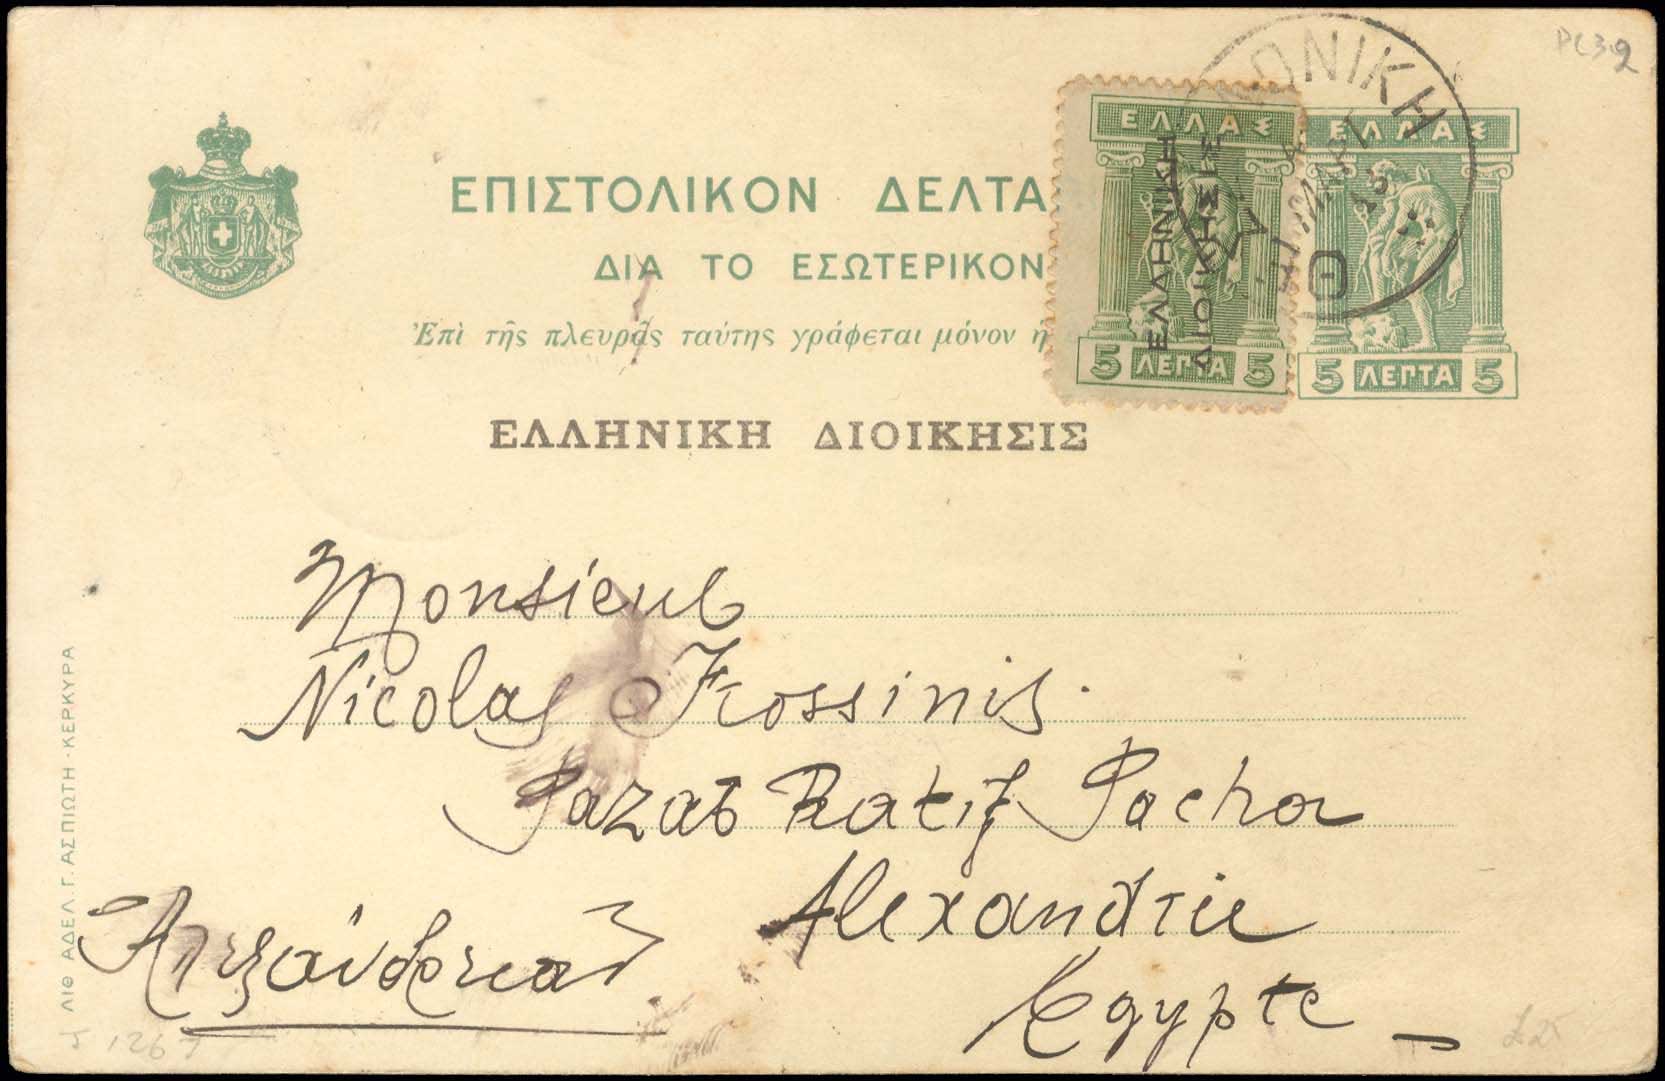 PC32
ΕΠΙΣΤΟΛΙΚΟΝ ΔΕΛΤΑ
ΔΙΑ ΤΟ ΕΣΩΤΕΡΙΚΟΝ
Ἐπὶ τῆς πλευρᾶς ταύτης γράφεται μόνον ἡ
ΕΛΛΗΝΙΚΗ ΔΙΟΙΚΗΣΙΣ
ΕΛΛΑΣ
ΕΛΛΗΝΙΚΗ
ΔΙΟΙΚΗΣΙΣ
5 ΛΕΠΤΑ 5
ΕΛΛΑΣ
5 ΛΕΠΤΑ 5
ΟΝΙΚΗ
ΜΑΡΤ
13
Monsieur
Nicolas Frossinis
Bazar Ratif Pacha
Alexandrie
Egypte
Ἀλεξάνδρειαν
ΛΙΘ ΑΔΕΛ. Γ. ΑΣΠΙΩΤΗ · ΚΕΡΚΥΡΑ
£25